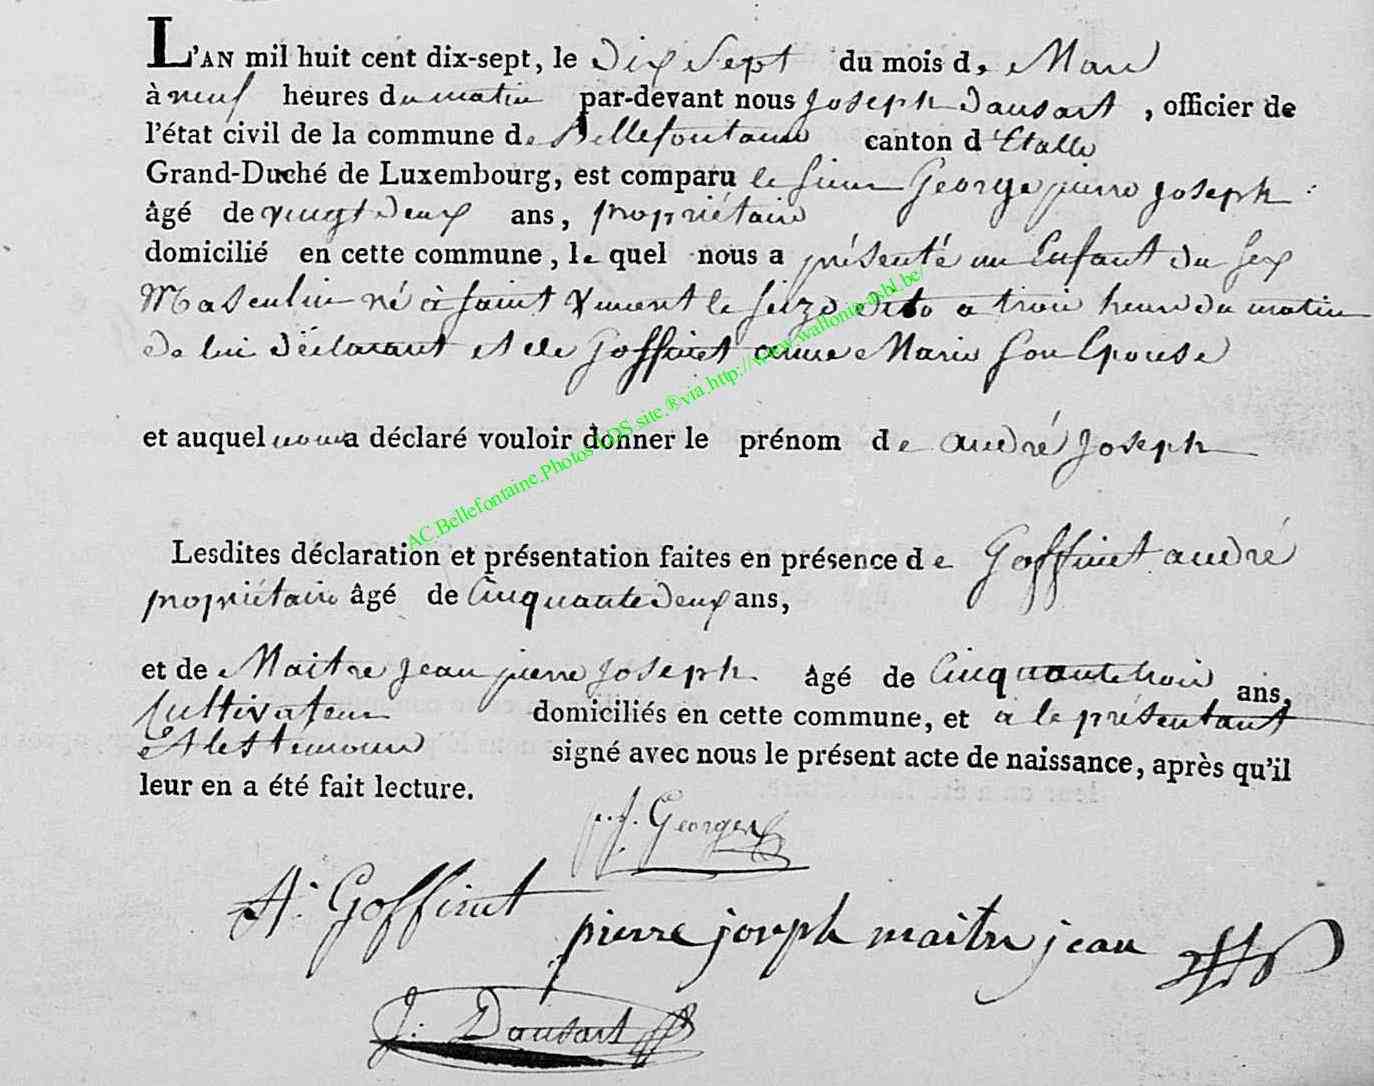 L'AN mil huit cent dix-sept, le dix Sept du mois de Mars
à neuf heures du matin par-devant nous Joseph Dausart, officier de
l'état civil de la commune de Bellefontaine canton d'Etalle
Grand-Duché de Luxembourg, est comparu le sieur George pierre Joseph
âgé de vingt deux ans, propriétaire
domicilié en cette commune, le quel nous a présenté un Enfant du sex
Masculin né à saint Vincent le seize dito a trois heures du matin
de lui déclarant et de Goffinet anne Marie son Epouse
et auquel nous a déclaré vouloir donner le prénom de andré Joseph
Lesdites déclaration et présentation faites en présence de Goffinet andré
propriétaire âgé de Cinquante deux ans,
et de Maitre jean pierre Joseph âgé de Cinquante trois ans,
Cultivateur domiciliés en cette commune, et a le présentant
et les témoins signé avec nous le présent acte de naissance, après qu'il
leur en a été fait lecture.
p. j. Georges
A. Goffinet
pierre joseph maitre jean
J. Dausart
AC.Bellefontaine.Photos LDS.site.®via.http://www.wallonia-asbl.be/